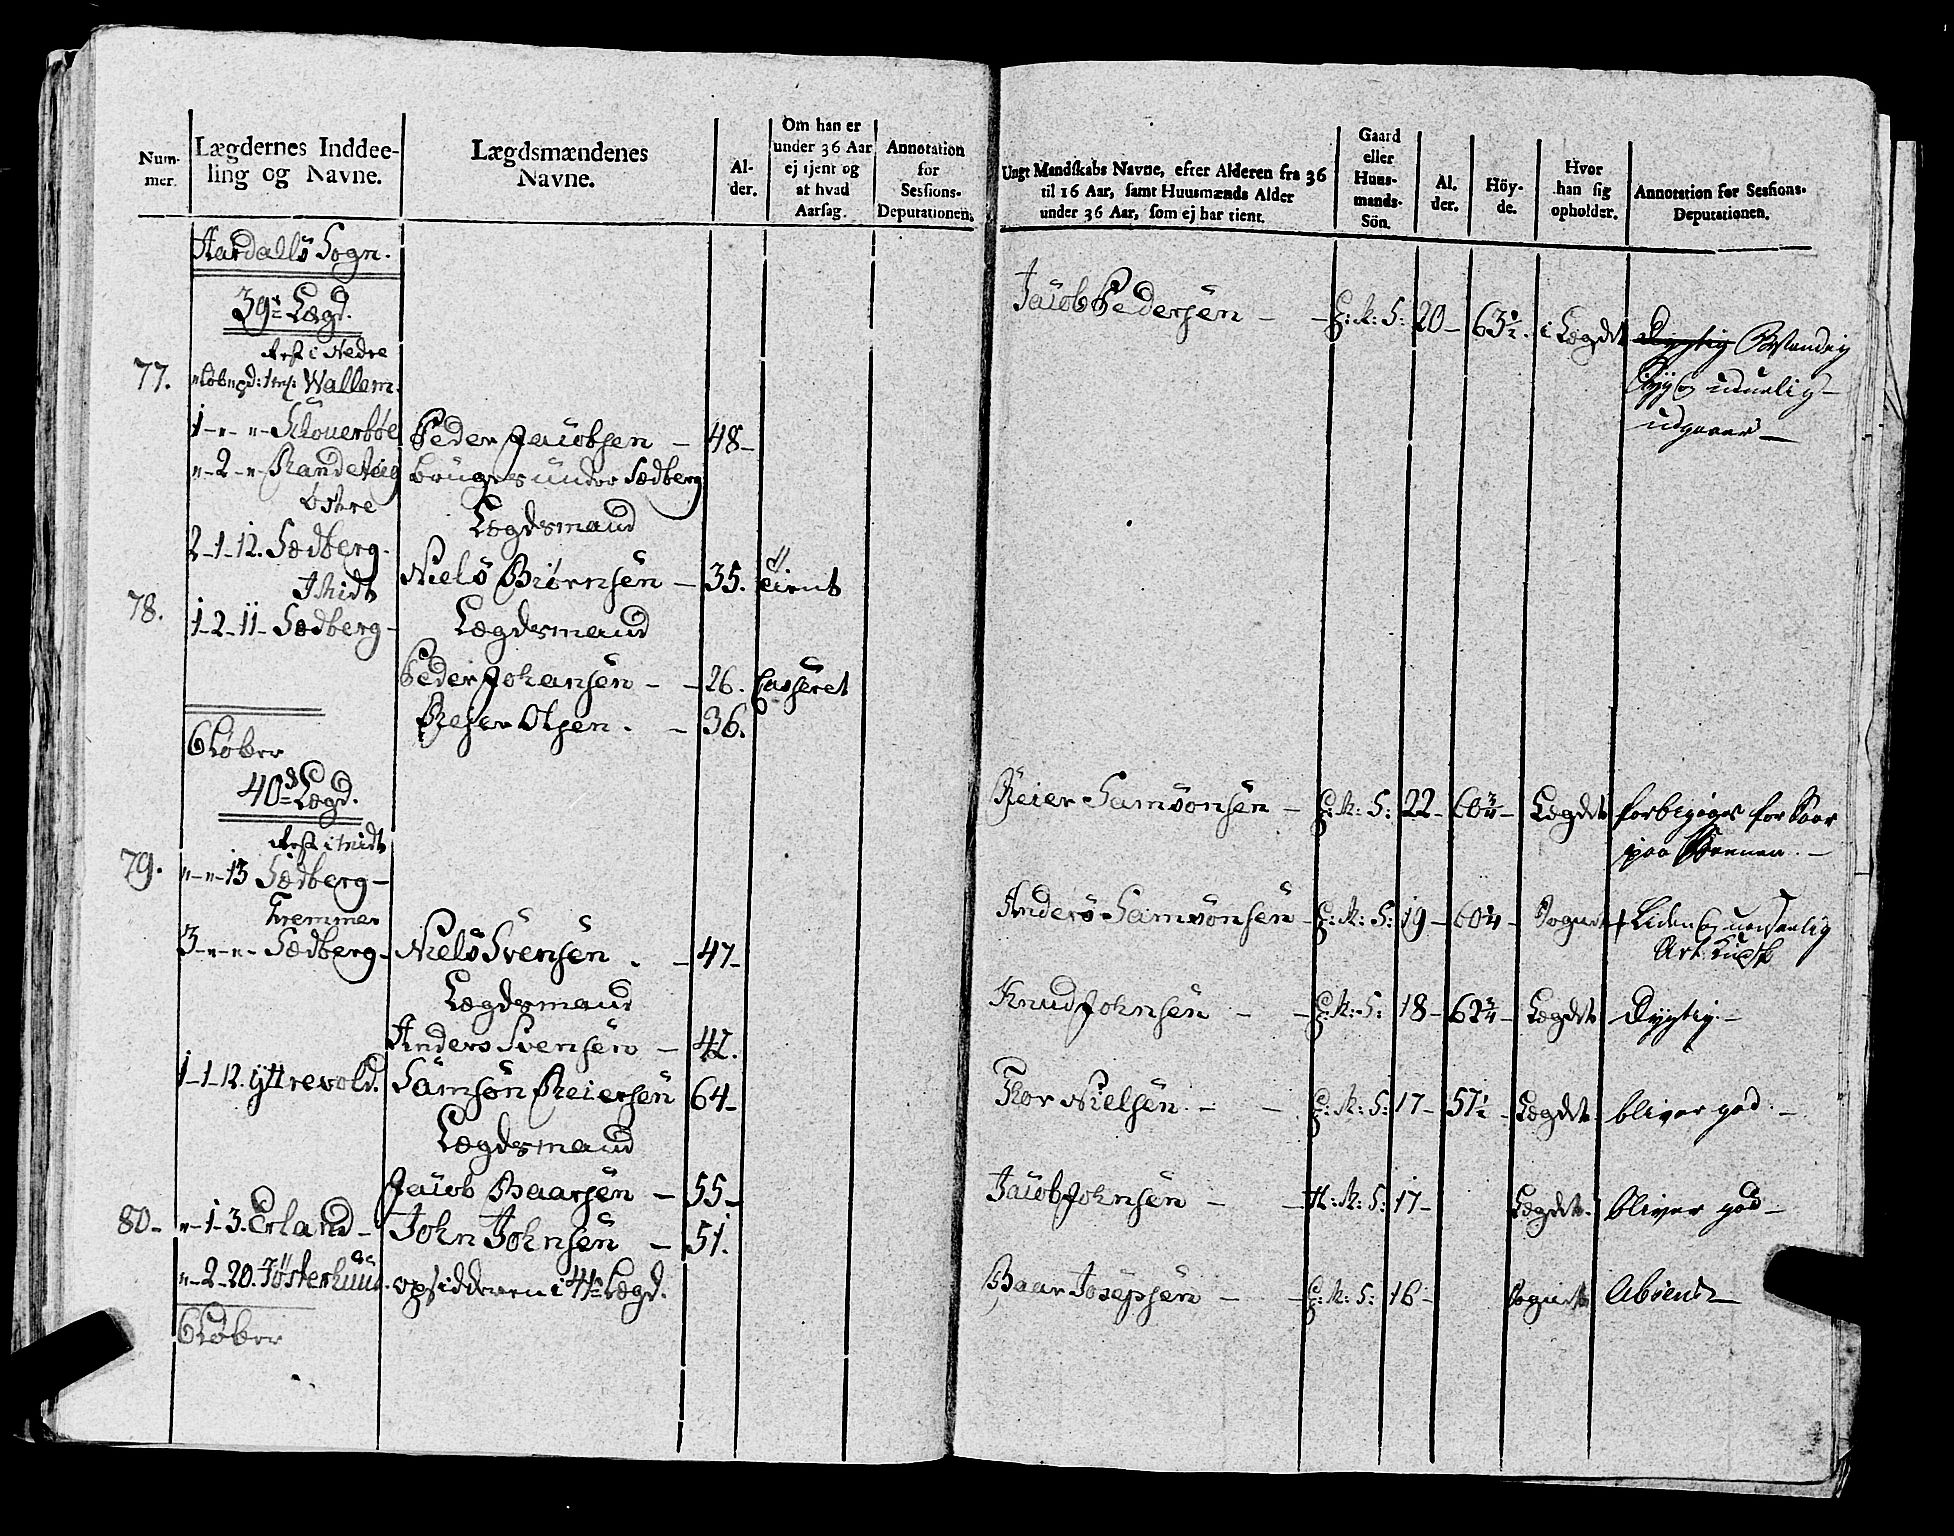 Num-
mer.
Lægdernes Inddee-
ling og Navne.
Lægdsmændenes
Navne.
Al-
der.
Om han er
under 36 Aar
ej tjent og
af hvad
Aarsag.
Annotation
for
Sessions-
Deputationen.
Aardalls Sogn.
39te Lægd.
Rest i Nedre
77. Wallem.
1 - " - " - Skouerbøe Peder Jacobsen - 48 -
" - 2 - " - Randeteig bruges under Sædberg
Østre Lægdsmand
2 - 1 - 12. Sædberg. Niels Biørnsen - 35. tient
Midt
78. 1 - 2 - 11 - Sædberg - Lægdsmand
Peder Johansen - - 26. Casseret
Reier Olsen. - 36.
6 Løber
40de Lægd.
Rest i Midt
79. " - " - 13 Sædberg -
Fremmer
3 - " - " - Sædberg - Niels Svensen - 47 -
Lægdsmand
Anders Svensen - 42.
1 - 1 - 12. Yttrevold. Samson Reiersen 64 -
Lægdsmand
Jacob Baarsen - 55 -
80 - " - 1 - 3. Erland - John Johnsen - 51.
" - 2 - 20. opsidderen i Lægd.
6 Løber
Ungt Mandskabs Navne, efter Alderen fra 36
til 16 Aar, samt Huusmænds Alder
under 36 Aar, som ej har tient.
Gaard
eller
Huus-
mands-
Sön.
Al.
der.
Höy-
de.
Hvor
han sig
opholder.
Annotation for Sessions-
Deputationen.
Jacob Pedersen - - G: M: S: 20 - 63 1/2. i Lægdet Dygtig Bestandig
Syg uduelig -
udgaaer -
Reier Samsonsen - G: M: S: 22 - 60 3/4 - Lægdet forbigiges for Saar
paa Beenen. -
Anders Samsonsen - G: M: S: 19 - 60 1/4 - Sognet Liden og uanseelig
Art. Kudsk
Knud Johnsen - - G: M: S: 18 - 62 3/4 - Lægdet Dygtig. -
Thor Nielsen. - - G: M: S: 17 - 57 1/2 - Lægdet. bliver god. -
Jacob Johnsen - - H: M: S: 17 - Lægdet. bliver god -
Baar Josepsen - - G: M: S: 16 - Sognet Absent -